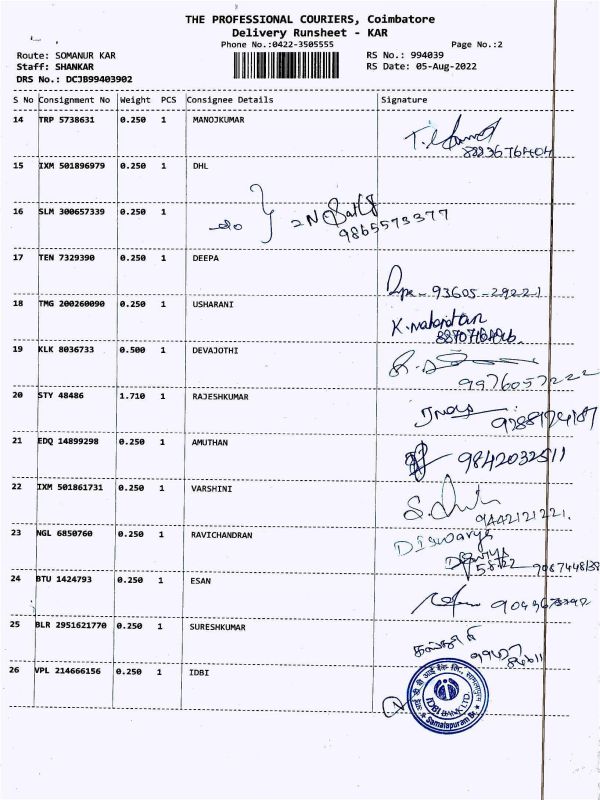 THE PROFESSIONAL COURIERS, Coimbatore
Delivery Runsheet - KAR
Phone No.:0422-3505555 Page No.:2
Route: SOMANUR KAR RS No.: 994039
Staff: SHANKAR RS Date: 05-Aug-2022
DRS No.: DCJB99403902
S No Consignment No Weight PCS Consignee Details Signature
14 TRP 5738631 0.250 1 MANOJKUMAR
8223676404
15 IXM 501896979 0.250 1 DHL
16 SLM 300657339 0.250 1
do } 2N
9865573377
17 TEN 7329390 0.250 1 DEEPA
93605-29221
18 TMG 200260090 0.250 1 USHARANI
19 KLK 8036733 0.500 1 DEVAJOTHI
9976057222
20 STY 48486 1.710 1 RAJESHKUMAR
21 EDQ 14899298 0.250 1 AMUTHAN
9842032511
22 IXM 501861731 0.250 1 VARSHINI
9442121221.
23 NGL 6850760 0.250 1 RAVICHANDRAN
24 BTU 1424793 0.250 1 ESAN
25 BLR 2951621770 0.250 1 SURESHKUMAR
26 VPL 214666156 0.250 1 IDBI
IDBI BANK LTD.
Samalapuram Br.